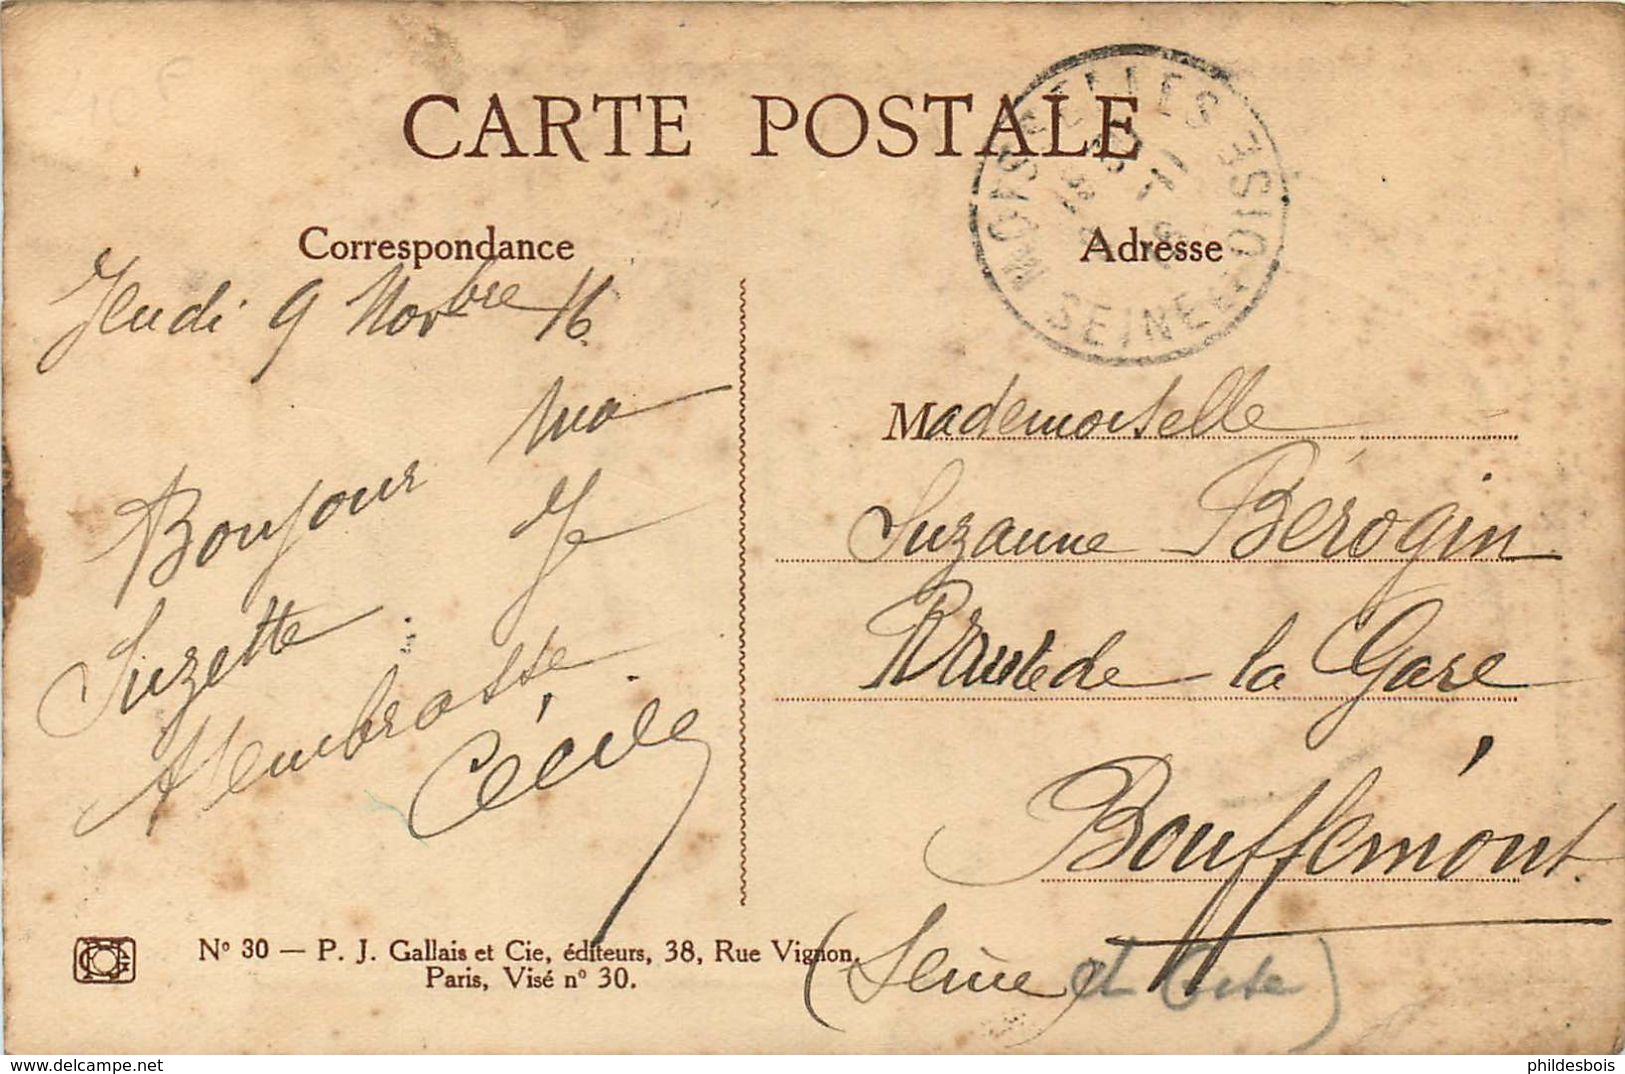 CARTE POSTALE
MOISSELLES
SEINE-&-OISE
Correspondance
Adresse
Jeudi 9 Novbre 16.
Bonjour ma
Suzette. Je
t'embrasse.
Cécile
Mademoiselle
Suzanne Bérogin
Route de la Gare
Bouffémont.
(Seine et Oise)
N° 30 — P. J. Gallais et Cie, éditeurs, 38, Rue Vignon,
Paris, Visé n° 30.
delcampe.net
phildesbois